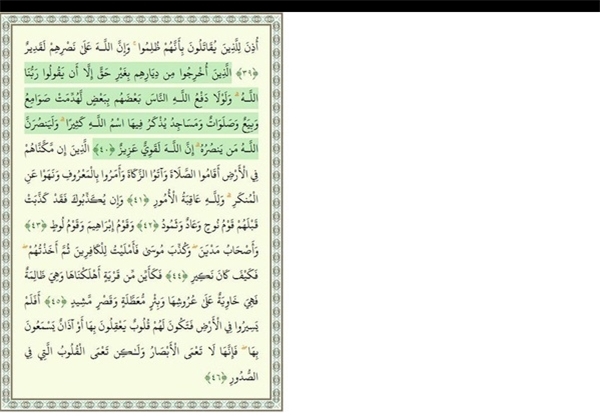 أُذِنَ لِلَّذِينَ يُقَاتَلُونَ بِأَنَّهُمْ ظُلِمُوا ۚ وَإِنَّ اللَّـهَ عَلَىٰ نَصْرِهِمْ لَقَدِيرٌ
﴿٣٩﴾ الَّذِينَ أُخْرِجُوا مِن دِيَارِهِم بِغَيْرِ حَقٍّ إِلَّا أَن يَقُولُوا رَبُّنَا
اللَّـهُ ۗ وَلَوْلَا دَفْعُ اللَّـهِ النَّاسَ بَعْضَهُم بِبَعْضٍ لَّهُدِّمَتْ صَوَامِعُ
وَبِيَعٌ وَصَلَوَاتٌ وَمَسَاجِدُ يُذْكَرُ فِيهَا اسْمُ اللَّـهِ كَثِيرًا ۗ وَلَيَنصُرَنَّ
اللَّـهُ مَن يَنصُرُهُ ۗ إِنَّ اللَّـهَ لَقَوِيٌّ عَزِيزٌ ﴿٤٠﴾ الَّذِينَ إِن مَّكَّنَّاهُمْ
فِي الْأَرْضِ أَقَامُوا الصَّلَاةَ وَآتَوُا الزَّكَاةَ وَأَمَرُوا بِالْمَعْرُوفِ وَنَهَوْا عَنِ
الْمُنكَرِ ۗ وَلِلَّـهِ عَاقِبَةُ الْأُمُورِ ﴿٤١﴾ وَإِن يُكَذِّبُوكَ فَقَدْ كَذَّبَتْ
قَبْلَهُمْ قَوْمُ نُوحٍ وَعَادٌ وَثَمُودُ ﴿٤٢﴾ وَقَوْمُ إِبْرَاهِيمَ وَقَوْمُ لُوطٍ ﴿٤٣﴾
وَأَصْحَابُ مَدْيَنَ ۖ وَكُذِّبَ مُوسَىٰ فَأَمْلَيْتُ لِلْكَافِرِينَ ثُمَّ أَخَذْتُهُمْ ۖ
فَكَيْفَ كَانَ نَكِيرِ ﴿٤٤﴾ فَكَأَيِّن مِّن قَرْيَةٍ أَهْلَكْنَاهَا وَهِيَ ظَالِمَةٌ
فَهِيَ خَاوِيَةٌ عَلَىٰ عُرُوشِهَا وَبِئْرٍ مُّعَطَّلَةٍ وَقَصْرٍ مَّشِيدٍ ﴿٤٥﴾ أَفَلَمْ
يَسِيرُوا فِي الْأَرْضِ فَتَكُونَ لَهُمْ قُلُوبٌ يَعْقِلُونَ بِهَا أَوْ آذَانٌ يَسْمَعُونَ
بِهَا ۖ فَإِنَّهَا لَا تَعْمَى الْأَبْصَارُ وَلَـٰكِن تَعْمَى الْقُلُوبُ الَّتِي فِي
الصُّدُورِ ﴿٤٦﴾